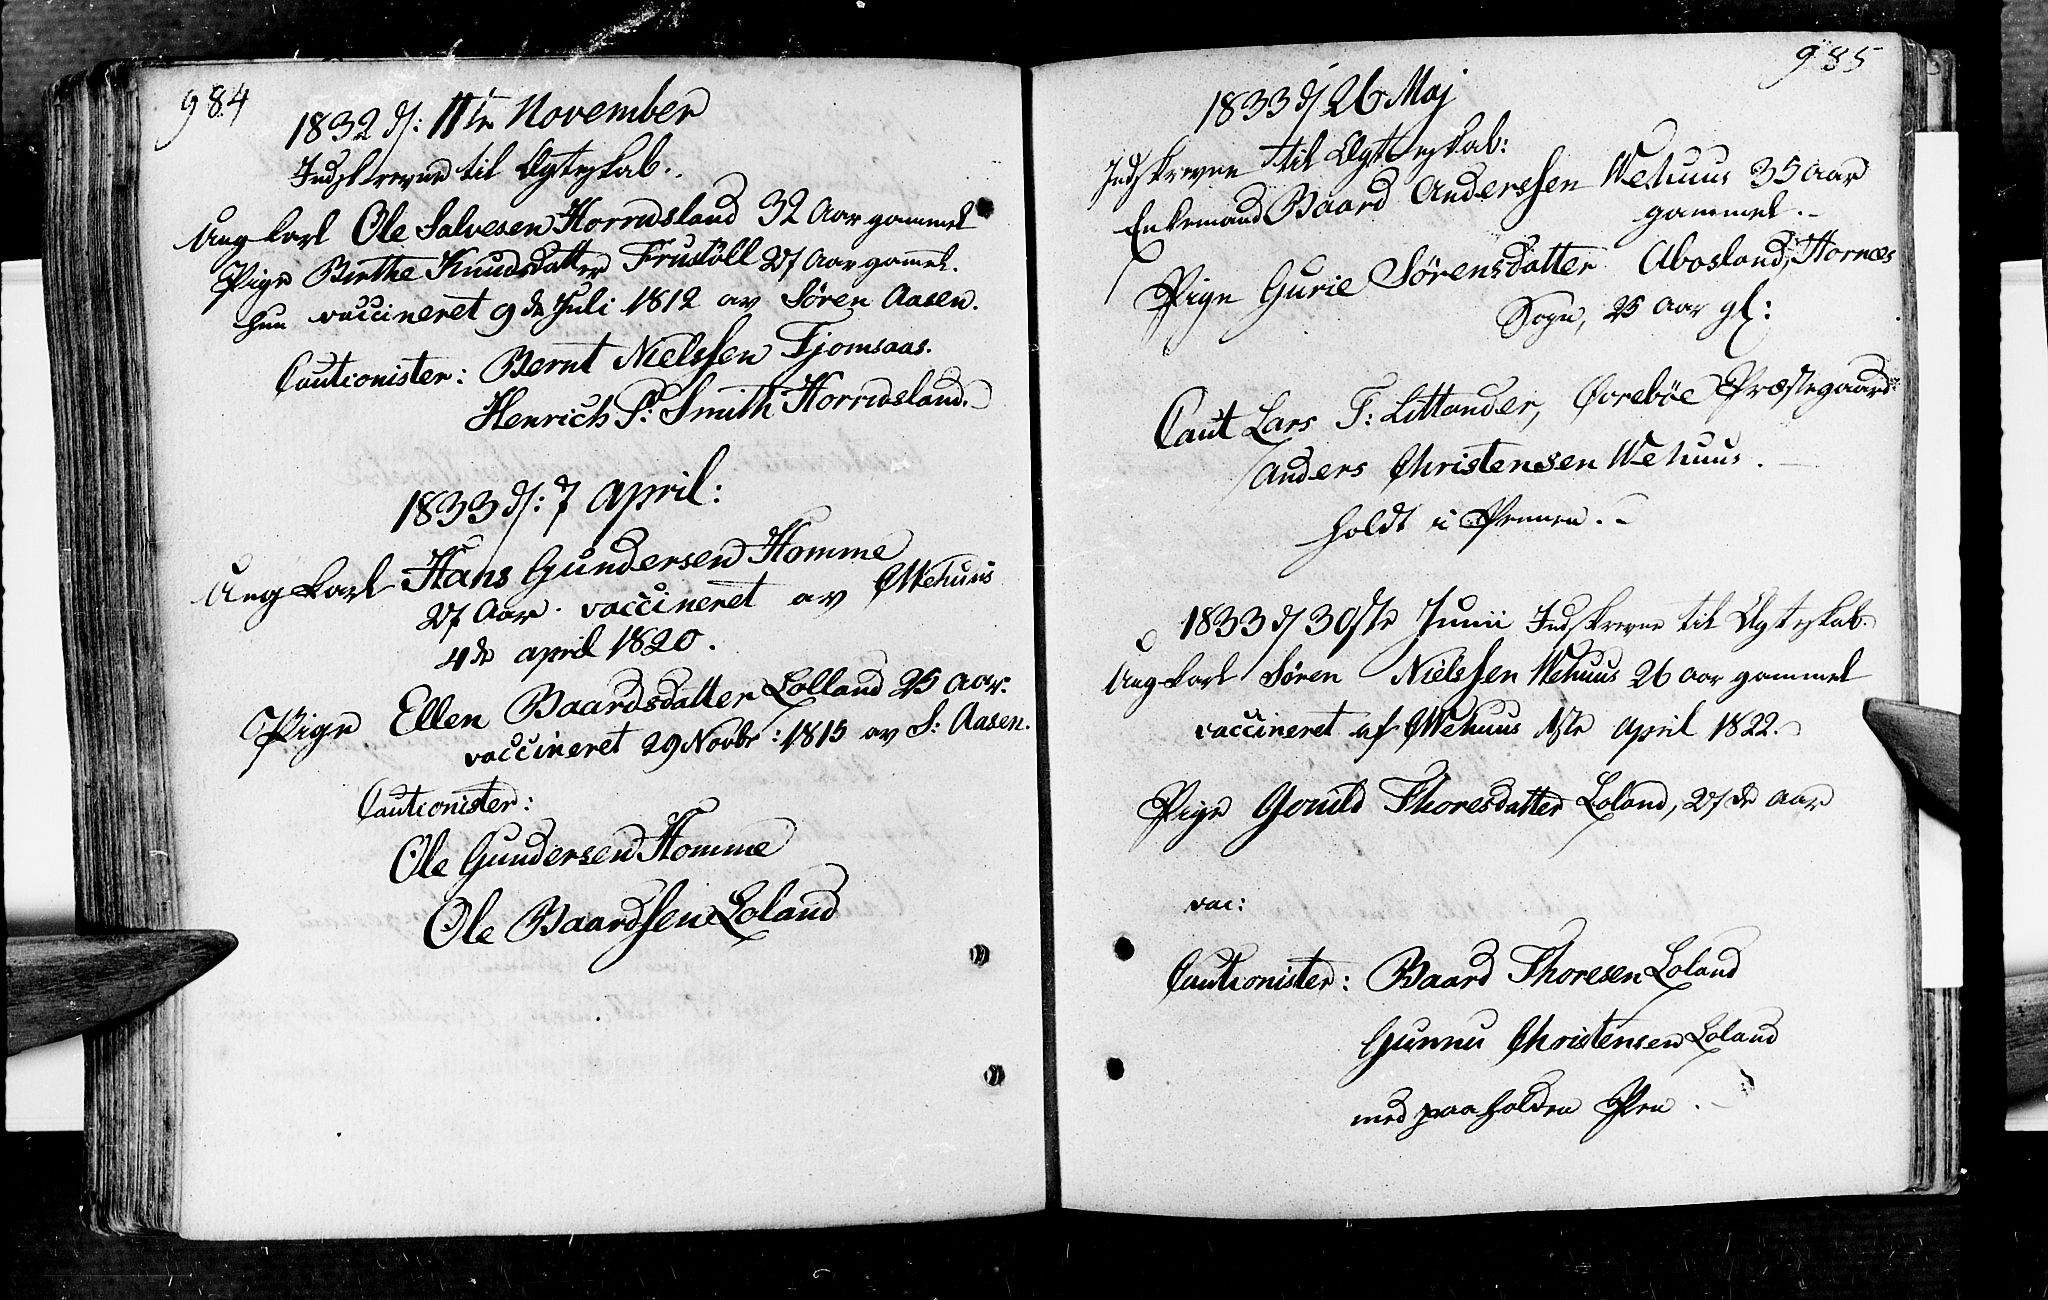 984
1832 d: 11te November
Indskrevne til Ægteskab.
Ung karl Ole Salvesen Horrisland 32 Aar gammel
Pige Birthe Knudsdatter Frustöll 27 Aar gamel.
hun vaccineret 9de Juli 1812 av Sören Aasen.
Cautionister: Bernt Nielssen Fjomsaas.
Henrich P: Smith Horrisland.
1833 d: 7 April:
Ung karl Hans Gundersen Homme
27 Aar. vaccineret av CWehuus
4de april 1820.
Pige Ellen Baardsdatter Lolland 25 Aar.
vaccineret 29 Novbr: 1815 av S: Aasen.
Cautionister:
Ole Gundersen Homme
Ole Baardssen Loland
985
1833 d 26 Maj
Indskrevne til Ægteskab:
Enkemand Baard Anderssen Wehuus 35 Aar
gammel.
Pige Gurie Sørensdatter Abosland, Hornes
Sogn, 25 Aar gl:
Caut Lars F: Littander, Øvrebøe Præstegaard
Anders Christensen Wehuus.
holdt i Pennen.
1833 d 30ste Junii Indskrevne til Ægteskab.
Ung karl Sören Nielssen Wehuus 26 Aar gammel
vaccineret af CWehuus 1ste April 1822.
Pige Gonild Thoresdatter Loland, 27de Aar
vac:
Cautionister: Baard Thoresen Loland
Gunnu Christensen Loland
med paaholden Pen.